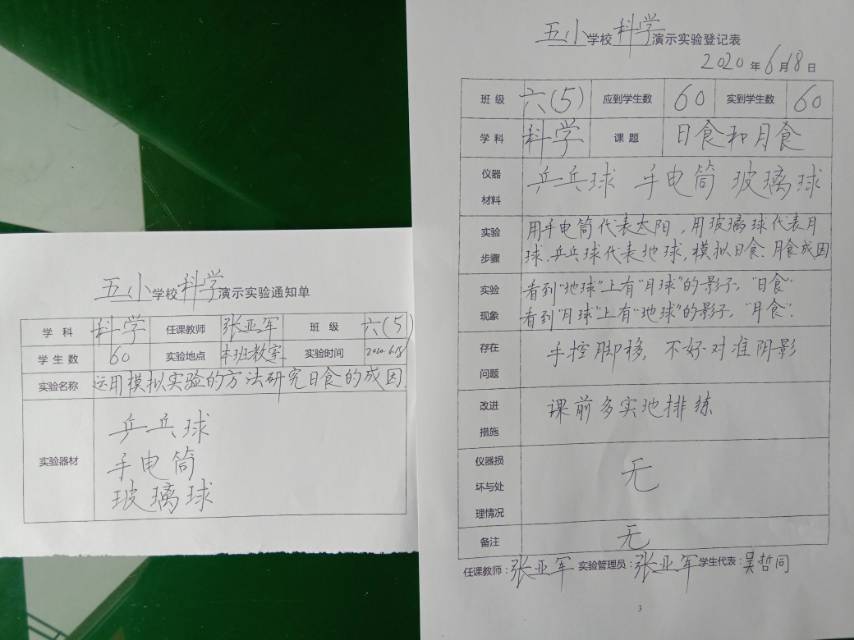 五小学校科学演示实验通知单
学科 科学 任课教师 张亚军 班级 六(5)
学生数 60 实验地点 本班教室 实验时间 2020.6.18
实验名称 运用模拟实验的方法研究日食的成因
实验器材
乒乓球
手电筒
玻璃球
五小学校科学演示实验登记表
2020年6月18日
班级 六(5) 应到学生数 60 实到学生数 60
学科 科学 课题 日食和月食
仪器材料 乒乓球 手电筒 玻璃球
实验步骤 用手电筒代表太阳,用玻璃球代表月
球、乒乓球代表地球,模拟日食、月食成因
实验现象 看到"地球"上有"月球"的影子,"日食"
看到"月球"上有"地球"的影子,"月食".
存在问题 手控脚移,不好对准阴影
改进措施 课前多实地排练
仪器损坏与处理情况 无
备注 无
任课教师:张亚军 实验管理员:张亚军 学生代表:吴哲同
3